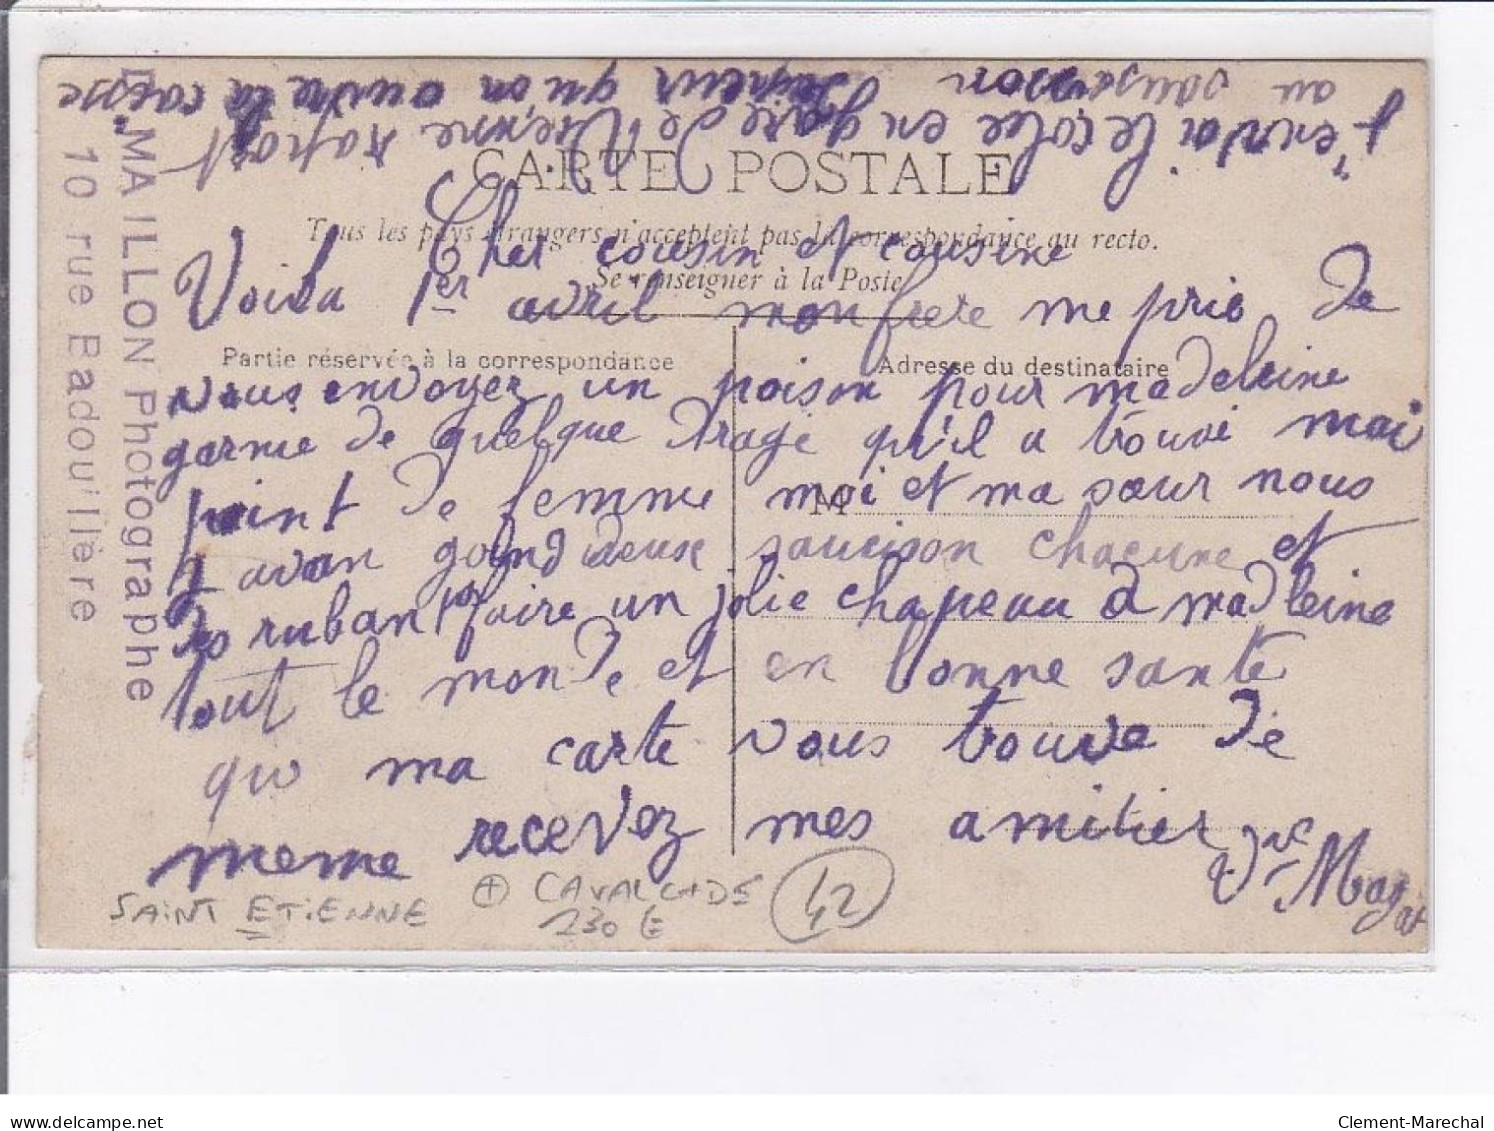 j'envoi le colie en gare de Vienne raport
au sausision qu on ouvre la caesse
CARTE POSTALE
Tous les pays étrangers n'acceptent pas la correspondance au recto.
Se renseigner à la Poste
Cher cousin et cousine
Voila 1er avril mon frere me prie de
Partie réservée à la correspondance
Adresse du destinataire
vous envoyez un poison pour madeleine
garnie de quelque drage qu'il a trouvé mai
point de femme moi et ma sœur nous
y avon deuse saucison chacune et
des ruban faire un jolie chapeau a madleine
M
tout le monde et en bonne sante
que ma carte vous trouve de
meme recevez mes amitier
Vve Magat
MAILLON Photographe
10 rue Badouillère
SAINT ETIENNE
CAVALCADE
130 E
42
www.delcampe.net
Clement-Marechal